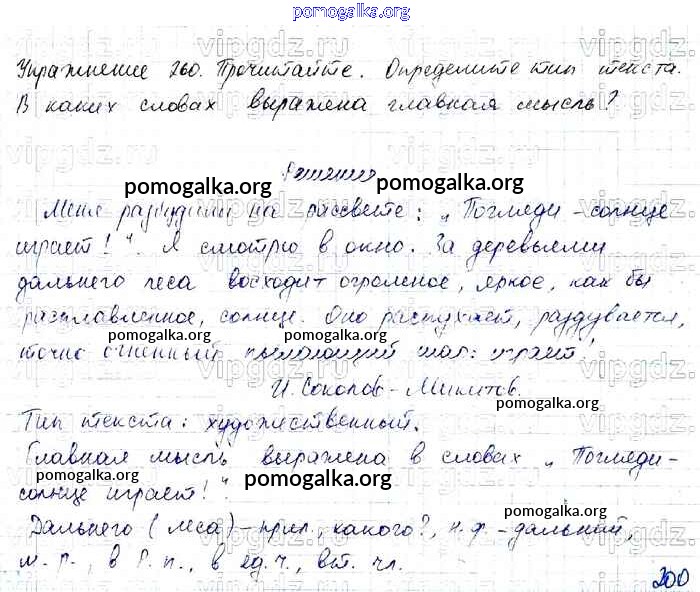 pomogalka.org
Упражнение 260. Прочитайте. Определите тип текста.
В каких словах выражена главная мысль?
Решение
pomogalka.org pomogalka.org
Меня разбудили на рассвете: „Погляди - солнце
играет!". Я смотрю в окно. За деревьями
дальнего леса восходит огромное, яркое, как бы
расплавленное, солнце. Оно распухает, раздувается,
pomogalka.org pomogalka.org
точно огненный пылающий шар: играет!
И. Соколов-Микитов.
pomogalka.org
Тип текста: художественный.
Главная мысль выражена в словах „Погляди-
pomogalka.org
солнце играет!".
pomogalka.org
pomogalka.org
Дальнего (леса) - прил., какого?, н.ф. - дальний,
м.р., в Р.п., в ед.ч., вт. чл.
200